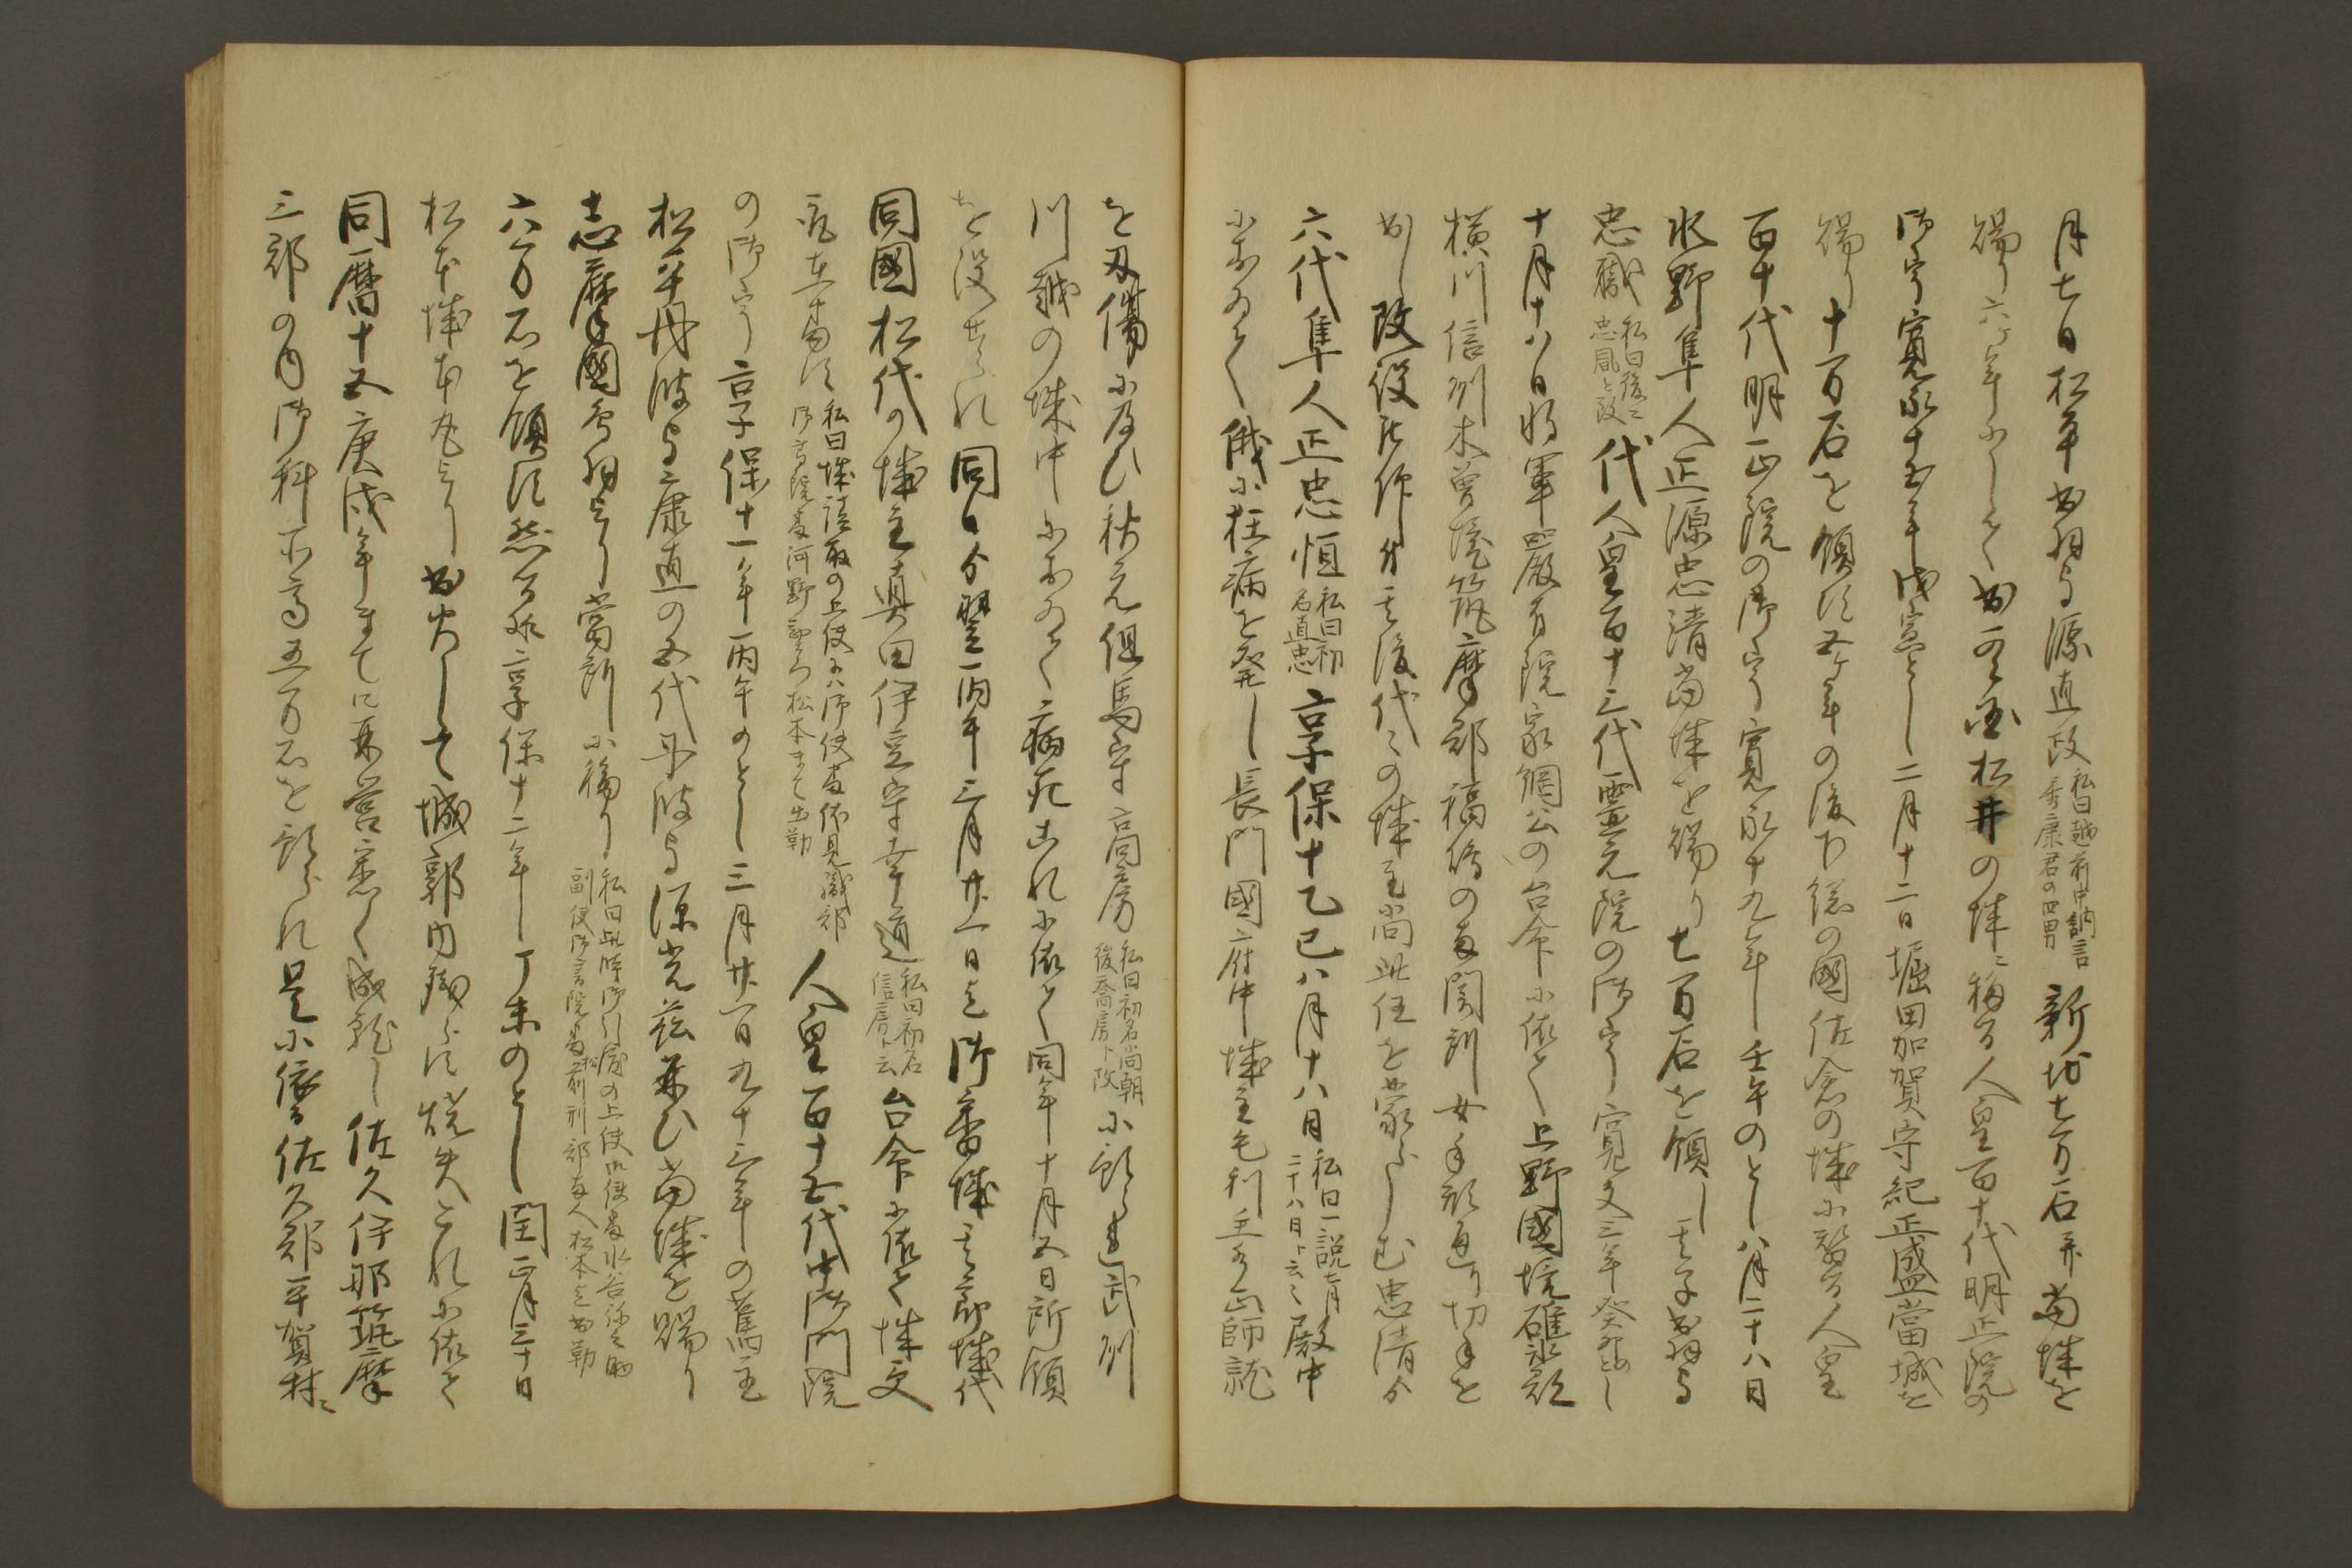 月七日松平出羽守源直政私曰越前中納言秀康君の四男新地七万石并当城を
賜り六ヶ年にして出雲国松井の城に移る人皇百十代明正院の
御宇寛永十五年戊寅とし二月十二日堀田加賀守紀正盛當城を
賜り十万石を領す五ヶ年の後下総の國佐倉の城に移る人皇
百十代明正院の御宇寛永十九年壬午のとし八月二十八日
水野隼人正源忠清當城を賜り七万石を領し其子出羽守
忠職私曰後ニ忠胤と改代人皇百十三代霊元院の御宇寛文三年癸卯とし
十月十八日将軍厳有院家綱公の台命に依て上野國境碓氷
横川信州木曽境筑摩郡福嶋の両関所女手形通り切手を
出し改役被仰付其後代々の城主尚此任を蒙らしむ忠清
六代隼人正忠恒私曰初名直忠享保十乙巳八月十八日私曰一説七月二十八日ト云々殿中
におゐて俄に狂病を発し長門國府中城主毛利主水正師就
を刃傷に及ひ秋元但馬守高房私曰初名尚朝後喬房ト改に預られ武州
川越の城中におゐて病死これに依て同年十月五日所領
を没せられ同日翌丙午三月廿一日迄御番城其節城代
同國松代の城主真田伊豆守幸道私曰初名信房ト云台命に依て城受
取在番す私曰城請取の上使御使番依見織部御書院番河野松本まて出勤人皇百十五代中御門院
の御宇享保十一年丙午のとし三月廿一日九十三年の舊主
松平丹波守康直の五代丹波守源光慈再ひ當城を賜り
志摩國鳥羽より當所に移り私曰此時御引渡の上使御使番水谷弥之助副使御書院番松前刑部両人松本迄出勤
六万石を領す然る処享保十二年丁未のとし閏正月三十日
松本城本丸より出火して城郭内残らす焼失これに依て
同暦十五庚戌年まてに再営悉く成就し佐久伊那筑摩
三郡の内御料所高五万石を預られ是に依る佐久郡平賀村ニ